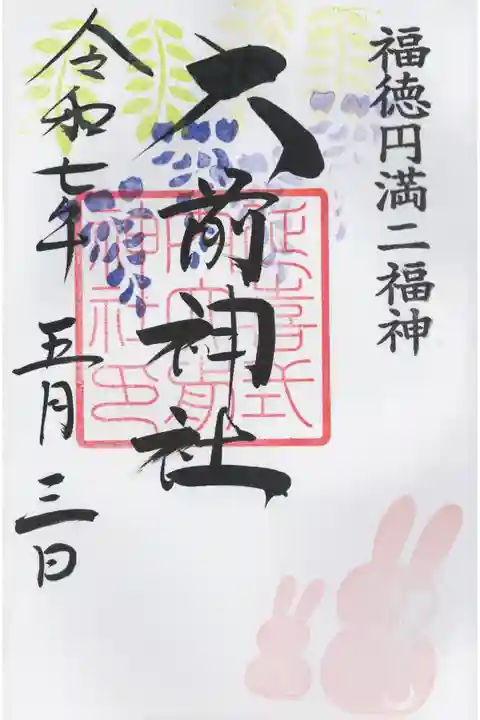 福徳円満二福神
大前神社
令和七年 五月 三日
延喜式
内大前
神社印